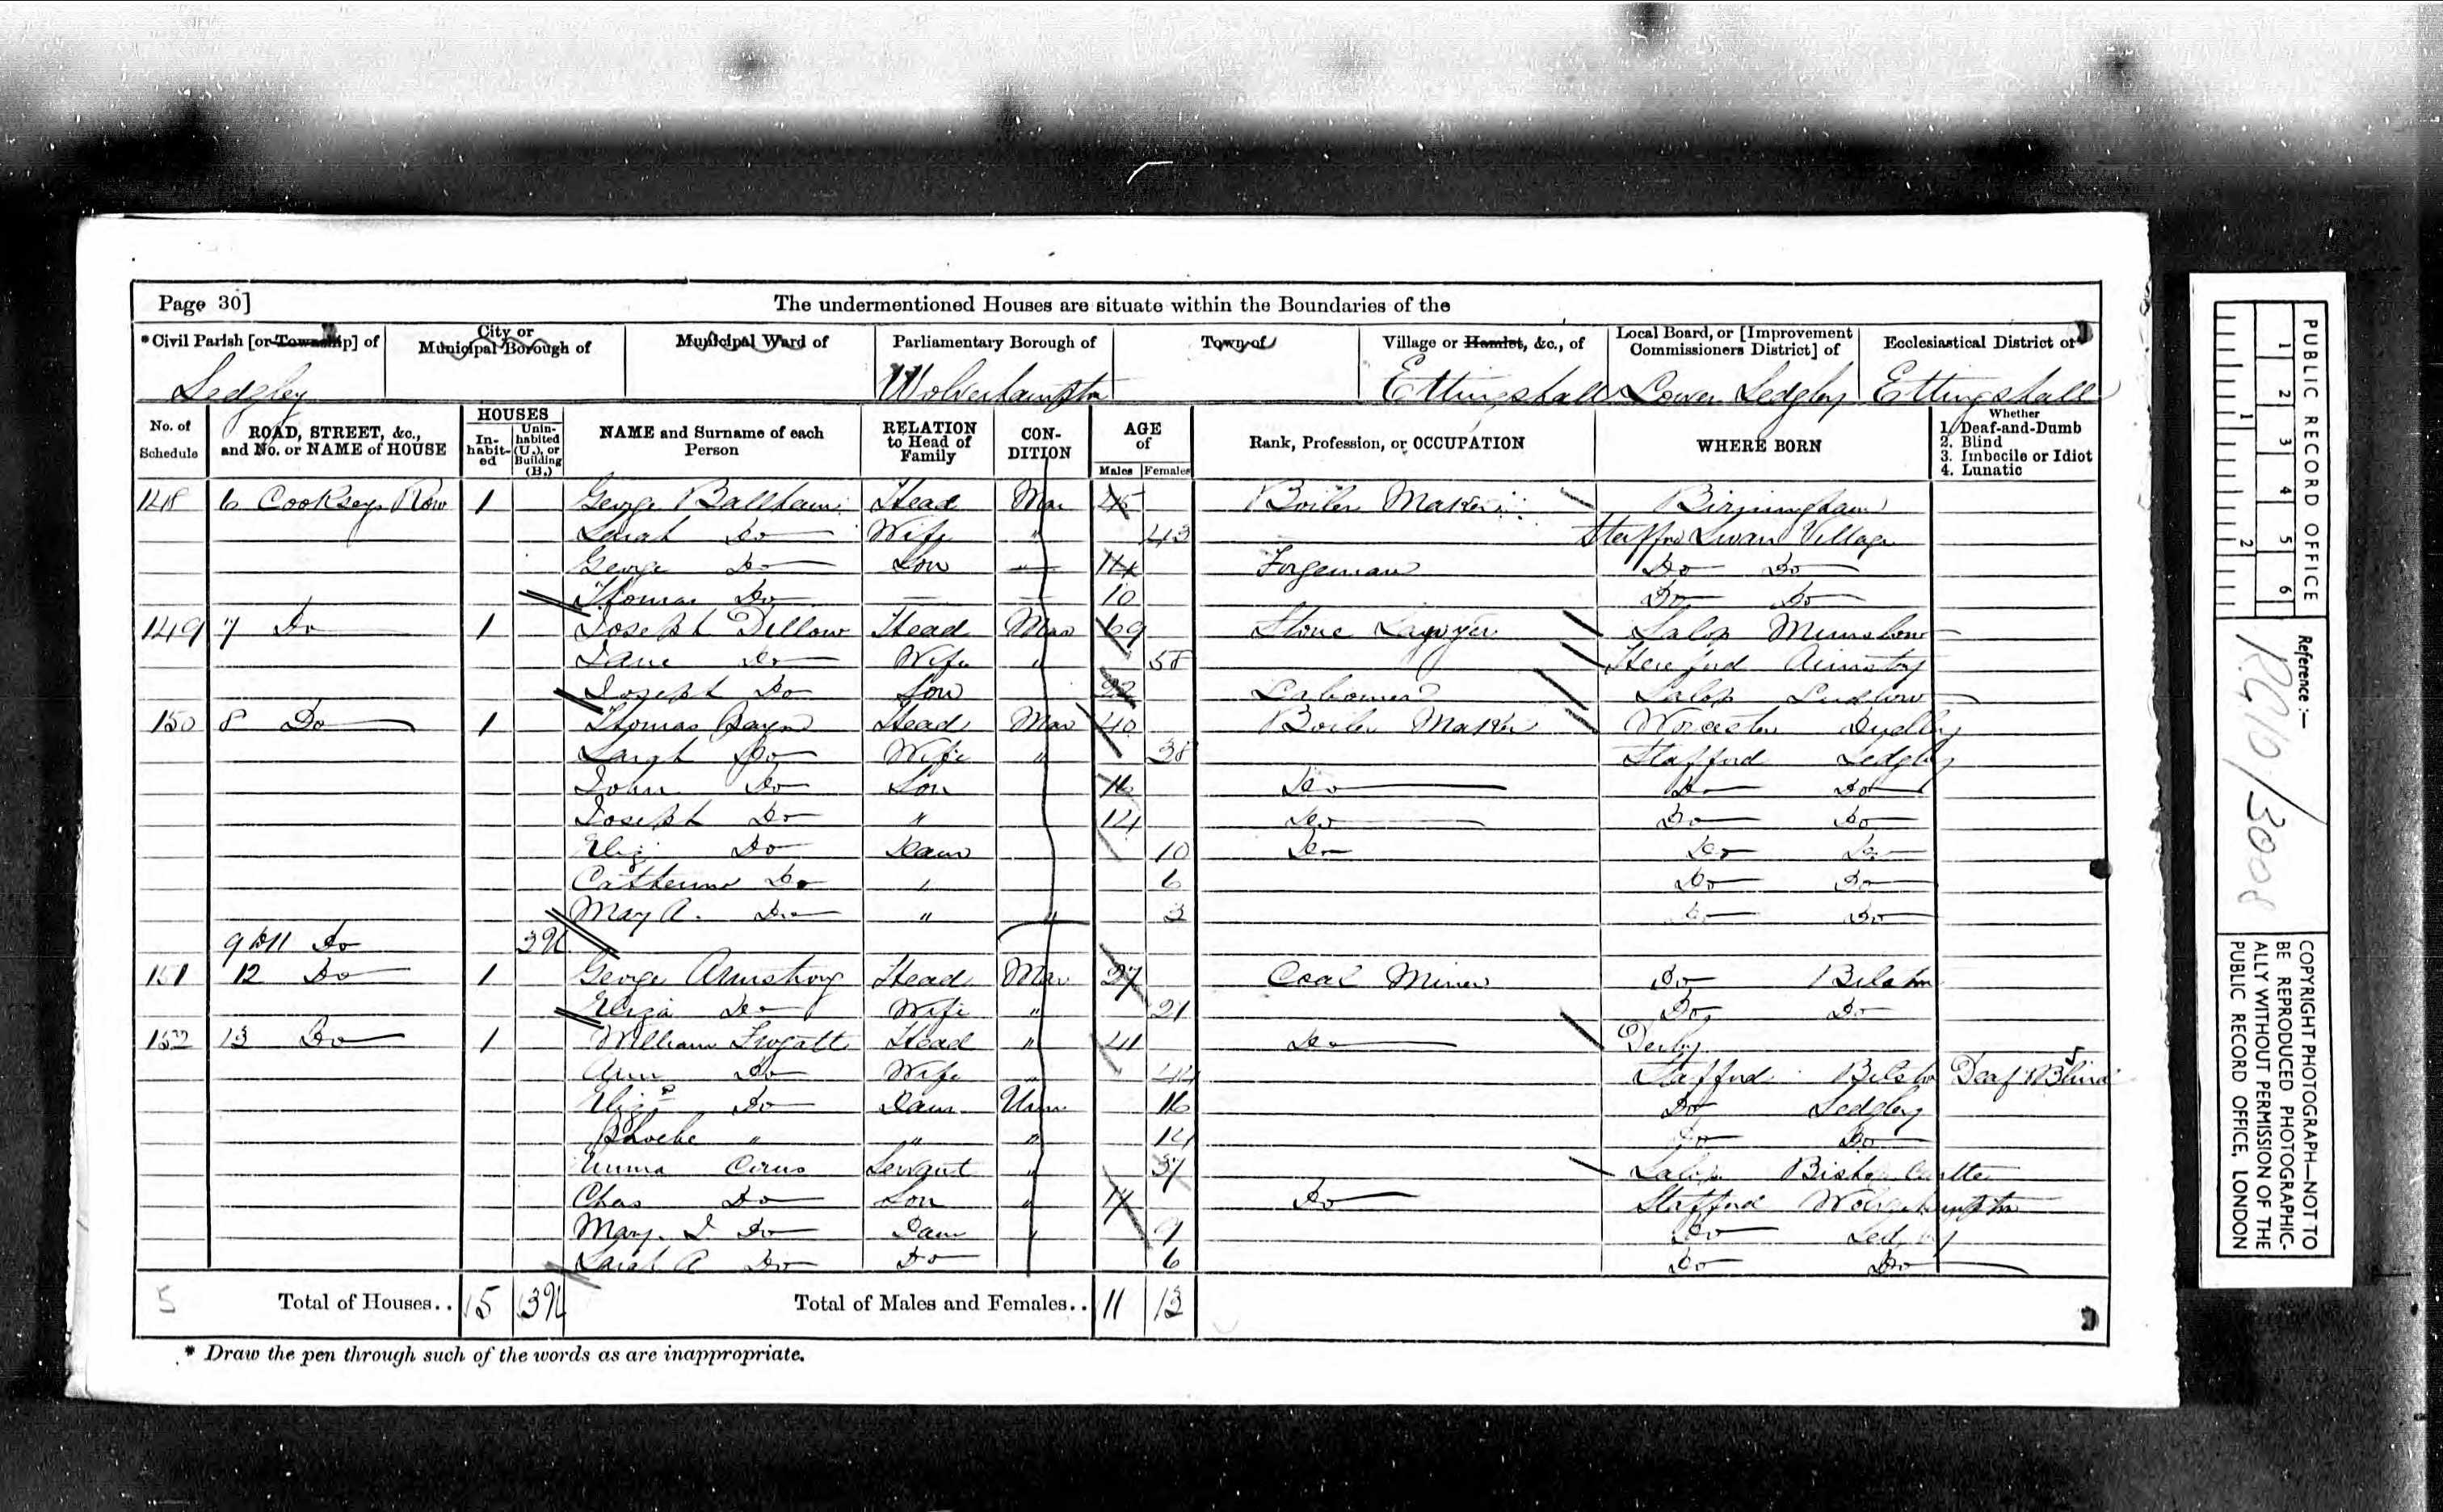 Page 30]
The undermentioned Houses are situate within the Boundaries of the
*Civil Parish [or Township] of
City or Municipal Borough of
Municipal Ward of
Parliamentary Borough of
Town of
Village or Hamlet, &c., of
Local Board, or [Improvement Commissioners District] of
Ecclesiastical District of
Sedgley Wolverhampton Ettingshall Lower Sedgley Ettingshall
No. of Schedule
ROAD, STREET, &c., and No. or NAME of HOUSE
HOUSES
In-habit-ed
Unin-habited (U.), or Building (B.)
NAME and Surname of each Person
RELATION to Head of Family
CON-DITION
AGE of
Males Females
Rank, Profession, or OCCUPATION
WHERE BORN
Whether
1. Deaf-and-Dumb
2. Blind
3. Imbecile or Idiot
4. Lunatic
148 6 Cookseys Row 1 George Head Mar 45 Boiler Maker Birmingham
Sarah Do Wife " 43 Stafford Swan Village
George Do Son Forgeman Do Do
Thomas Do 10 Do Do
149 7 Do 1 Joseph Dillow Head Mar 69 Stone Sawyer Salop
Jane Do Wife " 58 Hereford
Joseph Do Son 22 Labourer Salop Ludlow
150 8 Do 1 Thomas Head Mar 40 Boiler Maker Worcester
Sarah Do Wife " 38 Stafford Sedgley
John Do Son 16 Do Do Do
Joseph Do " 14 Do Do Do
Eliz Do Daur 10 Do Do Do
Catherine Do " 6 Do Do
Mary A. Do " " 3 Do Do
9 to 11 Do 3U
151 12 Do 1 George Armstrong Head Mar 27 Coal Miner Do Bilston
Eliza Do Wife " 21 Do Do
152 13 Do 1 William Frogatt Head " 41 Do Derby
Ann Do Wife " 44 Stafford Bilston Deaf & Blind
Eliz Do Daur Unm 16 Do Sedgley
Phoebe " " " 14 Do Do
Emma Servant " 37 Salop Bishop Castle
Chas Do Son " 17 Do Stafford Wolverhampton
Mary J Do Daur " 9 Do Sedgley
Sarah A Do Do 6 Do Do
5 Total of Houses.. 5 3U Total of Males and Females.. 11 13
* Draw the pen through such of the words as are inappropriate.
PUBLIC RECORD OFFICE
1 2 3 4 5 6
1 2
Reference:—
RG10/3008
COPYRIGHT PHOTOGRAPH—NOT TO
BE REPRODUCED PHOTOGRAPHIC-
ALLY WITHOUT PERMISSION OF THE
PUBLIC RECORD OFFICE, LONDON